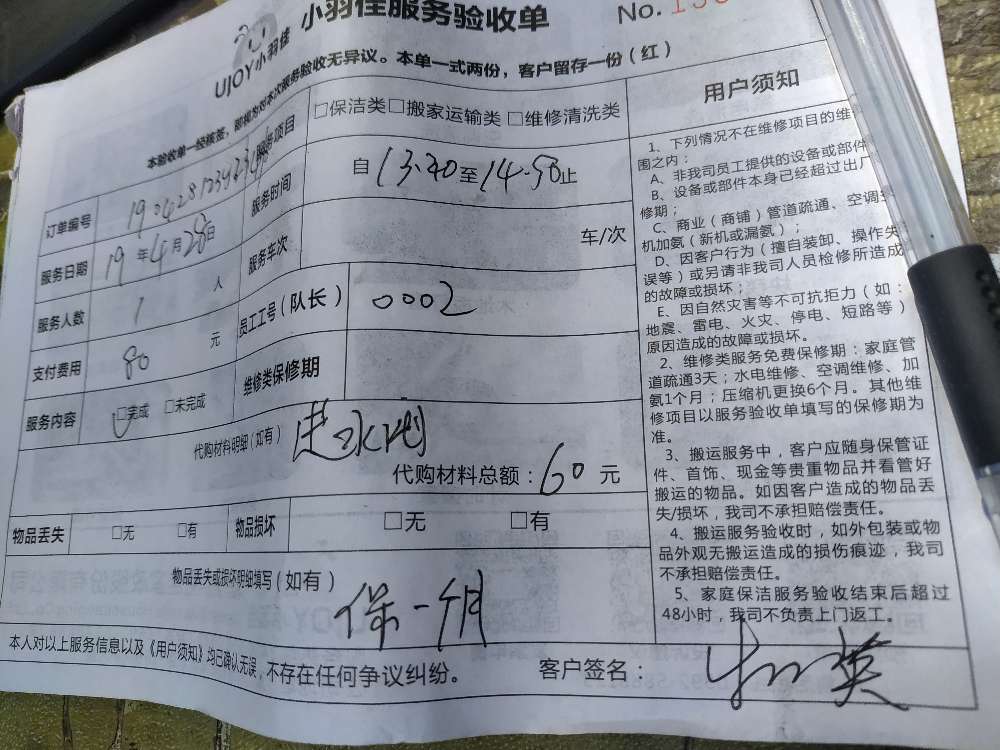 UJOY小羽佳
小羽佳服务验收单
No.
本验收单一经核签，即视为对本次服务验收无异议。本单一式两份，客户留存一份（红）
订单编号
服务项目 □保洁类□搬家运输类 □维修清洗类
服务日期 19年4月28日
服务时间 自13.20至14.50止
服务人数 1 人
服务车次 车/次
支付费用 80 元
员工工号（队长） 0002
服务内容 □完成 □未完成
维修类保修期
代购材料明细（如有） 进水阀
代购材料总额：60元
物品丢失 □无 □有 物品损坏 □无 □有
物品丢失或损坏明细填写（如有）
保一个月
本人对以上服务信息以及《用户须知》均已确认无误，不存在任何争议纠纷。 客户签名：
用户须知
1、下列情况不在维修项目的维
围之内：
A、非我司员工提供的设备或部件
B、设备或部件本身已经超过出厂
修期；
C、商业（商铺）管道疏通、空调
机加氨（新机或漏氨）；
D、因客户行为（擅自装卸、操作失
误等）或另请非我司人员检修所造成
的故障或损坏；
E、因自然灾害等不可抗拒力（如：
地震、雷电、火灾、停电、短路等）
原因造成的故障或损坏。
2、维修类服务免费保修期：家庭管
道疏通3天；水电维修、空调维修、加
氨1个月；压缩机更换6个月。其他维
修项目以服务验收单填写的保修期为
准。
3、搬运服务中，客户应随身保管证
件、首饰、现金等贵重物品并看管好
搬运的物品。如因客户造成的物品丢
失/损坏，我司不承担赔偿责任。
4、搬运服务验收时，如外包装或物
品外观无搬运造成的损伤痕迹，我司
不承担赔偿责任。
5、家庭保洁服务验收结束后超过
48小时，我司不负责上门返工。